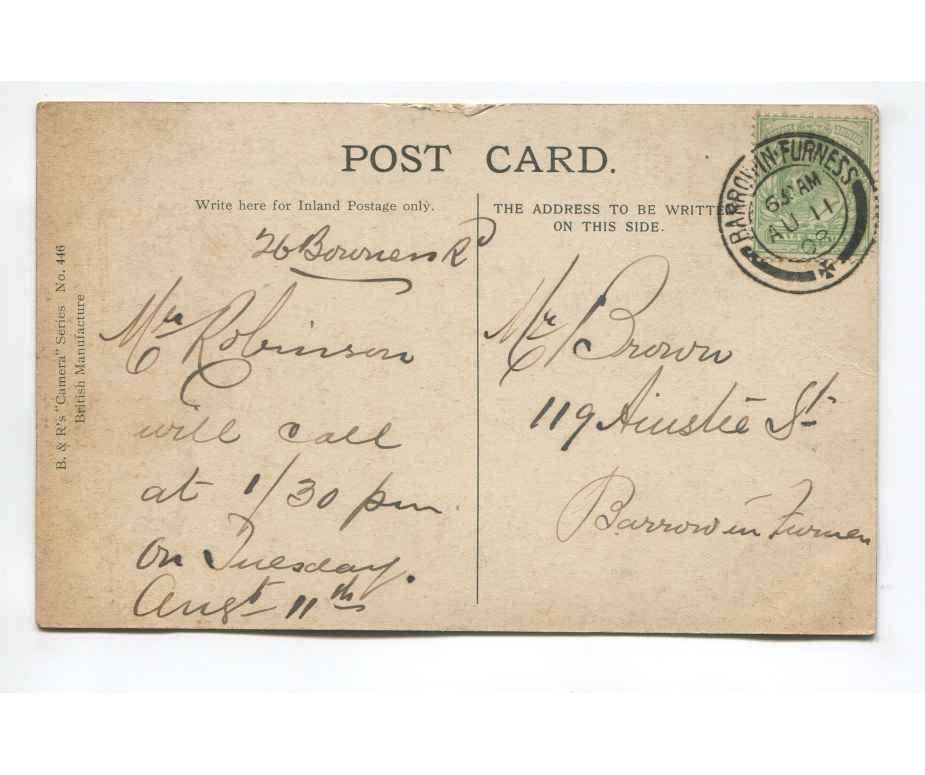 POST CARD.
Write here for Inland Postage only.
THE ADDRESS TO BE WRITTE
ON THIS SIDE.
BARROW-IN-FURNESS
AM
AU 11
08
B. & R's "Camera" Series No. 446
British Manufacture
26 Rd
Mr Robinson
will call
at 1/30 pm.
on Tuesday.
Augt 11th
Mr Brown
119 Ainslie St
Barrow in Furness